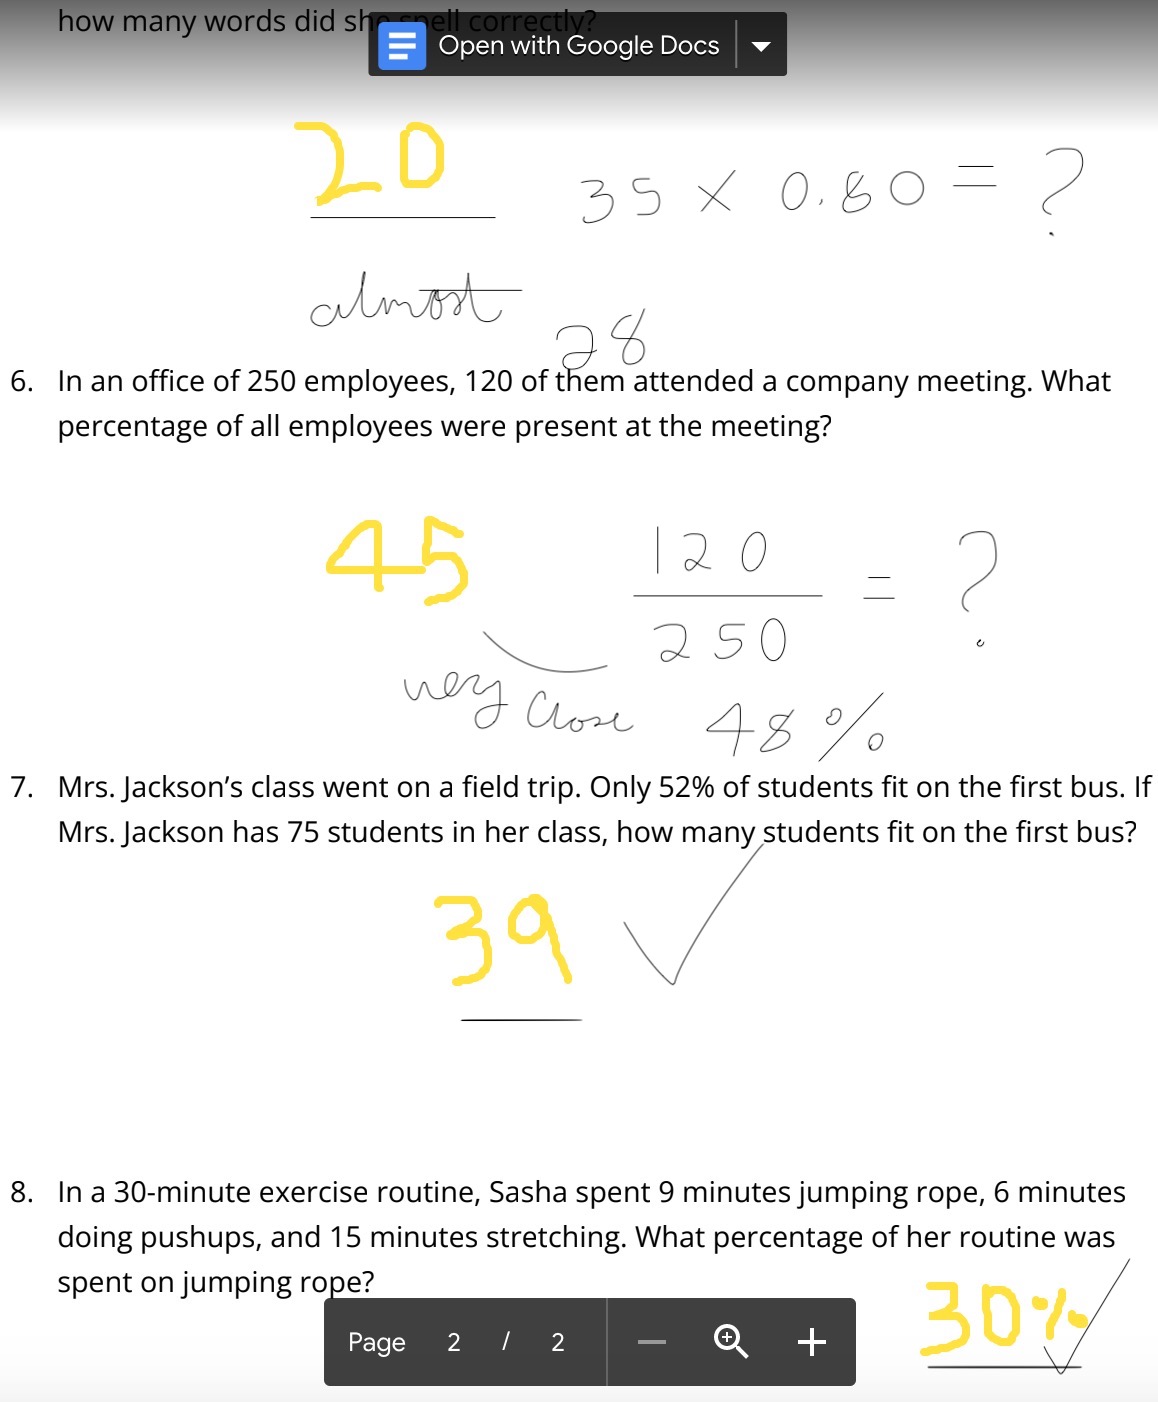 how many words did she spell correctly?
Open with Google Docs
20
35 x 0.80 = ?
almost
28
6. In an office of 250 employees, 120 of them attended a company meeting. What
percentage of all employees were present at the meeting?
45
120
= ?
250
very close 48%
7. Mrs. Jackson’s class went on a field trip. Only 52% of students fit on the first bus. If
Mrs. Jackson has 75 students in her class, how many students fit on the first bus?
39
8. In a 30-minute exercise routine, Sasha spent 9 minutes jumping rope, 6 minutes
doing pushups, and 15 minutes stretching. What percentage of her routine was
spent on jumping rope?
30%
Page 2 / 2